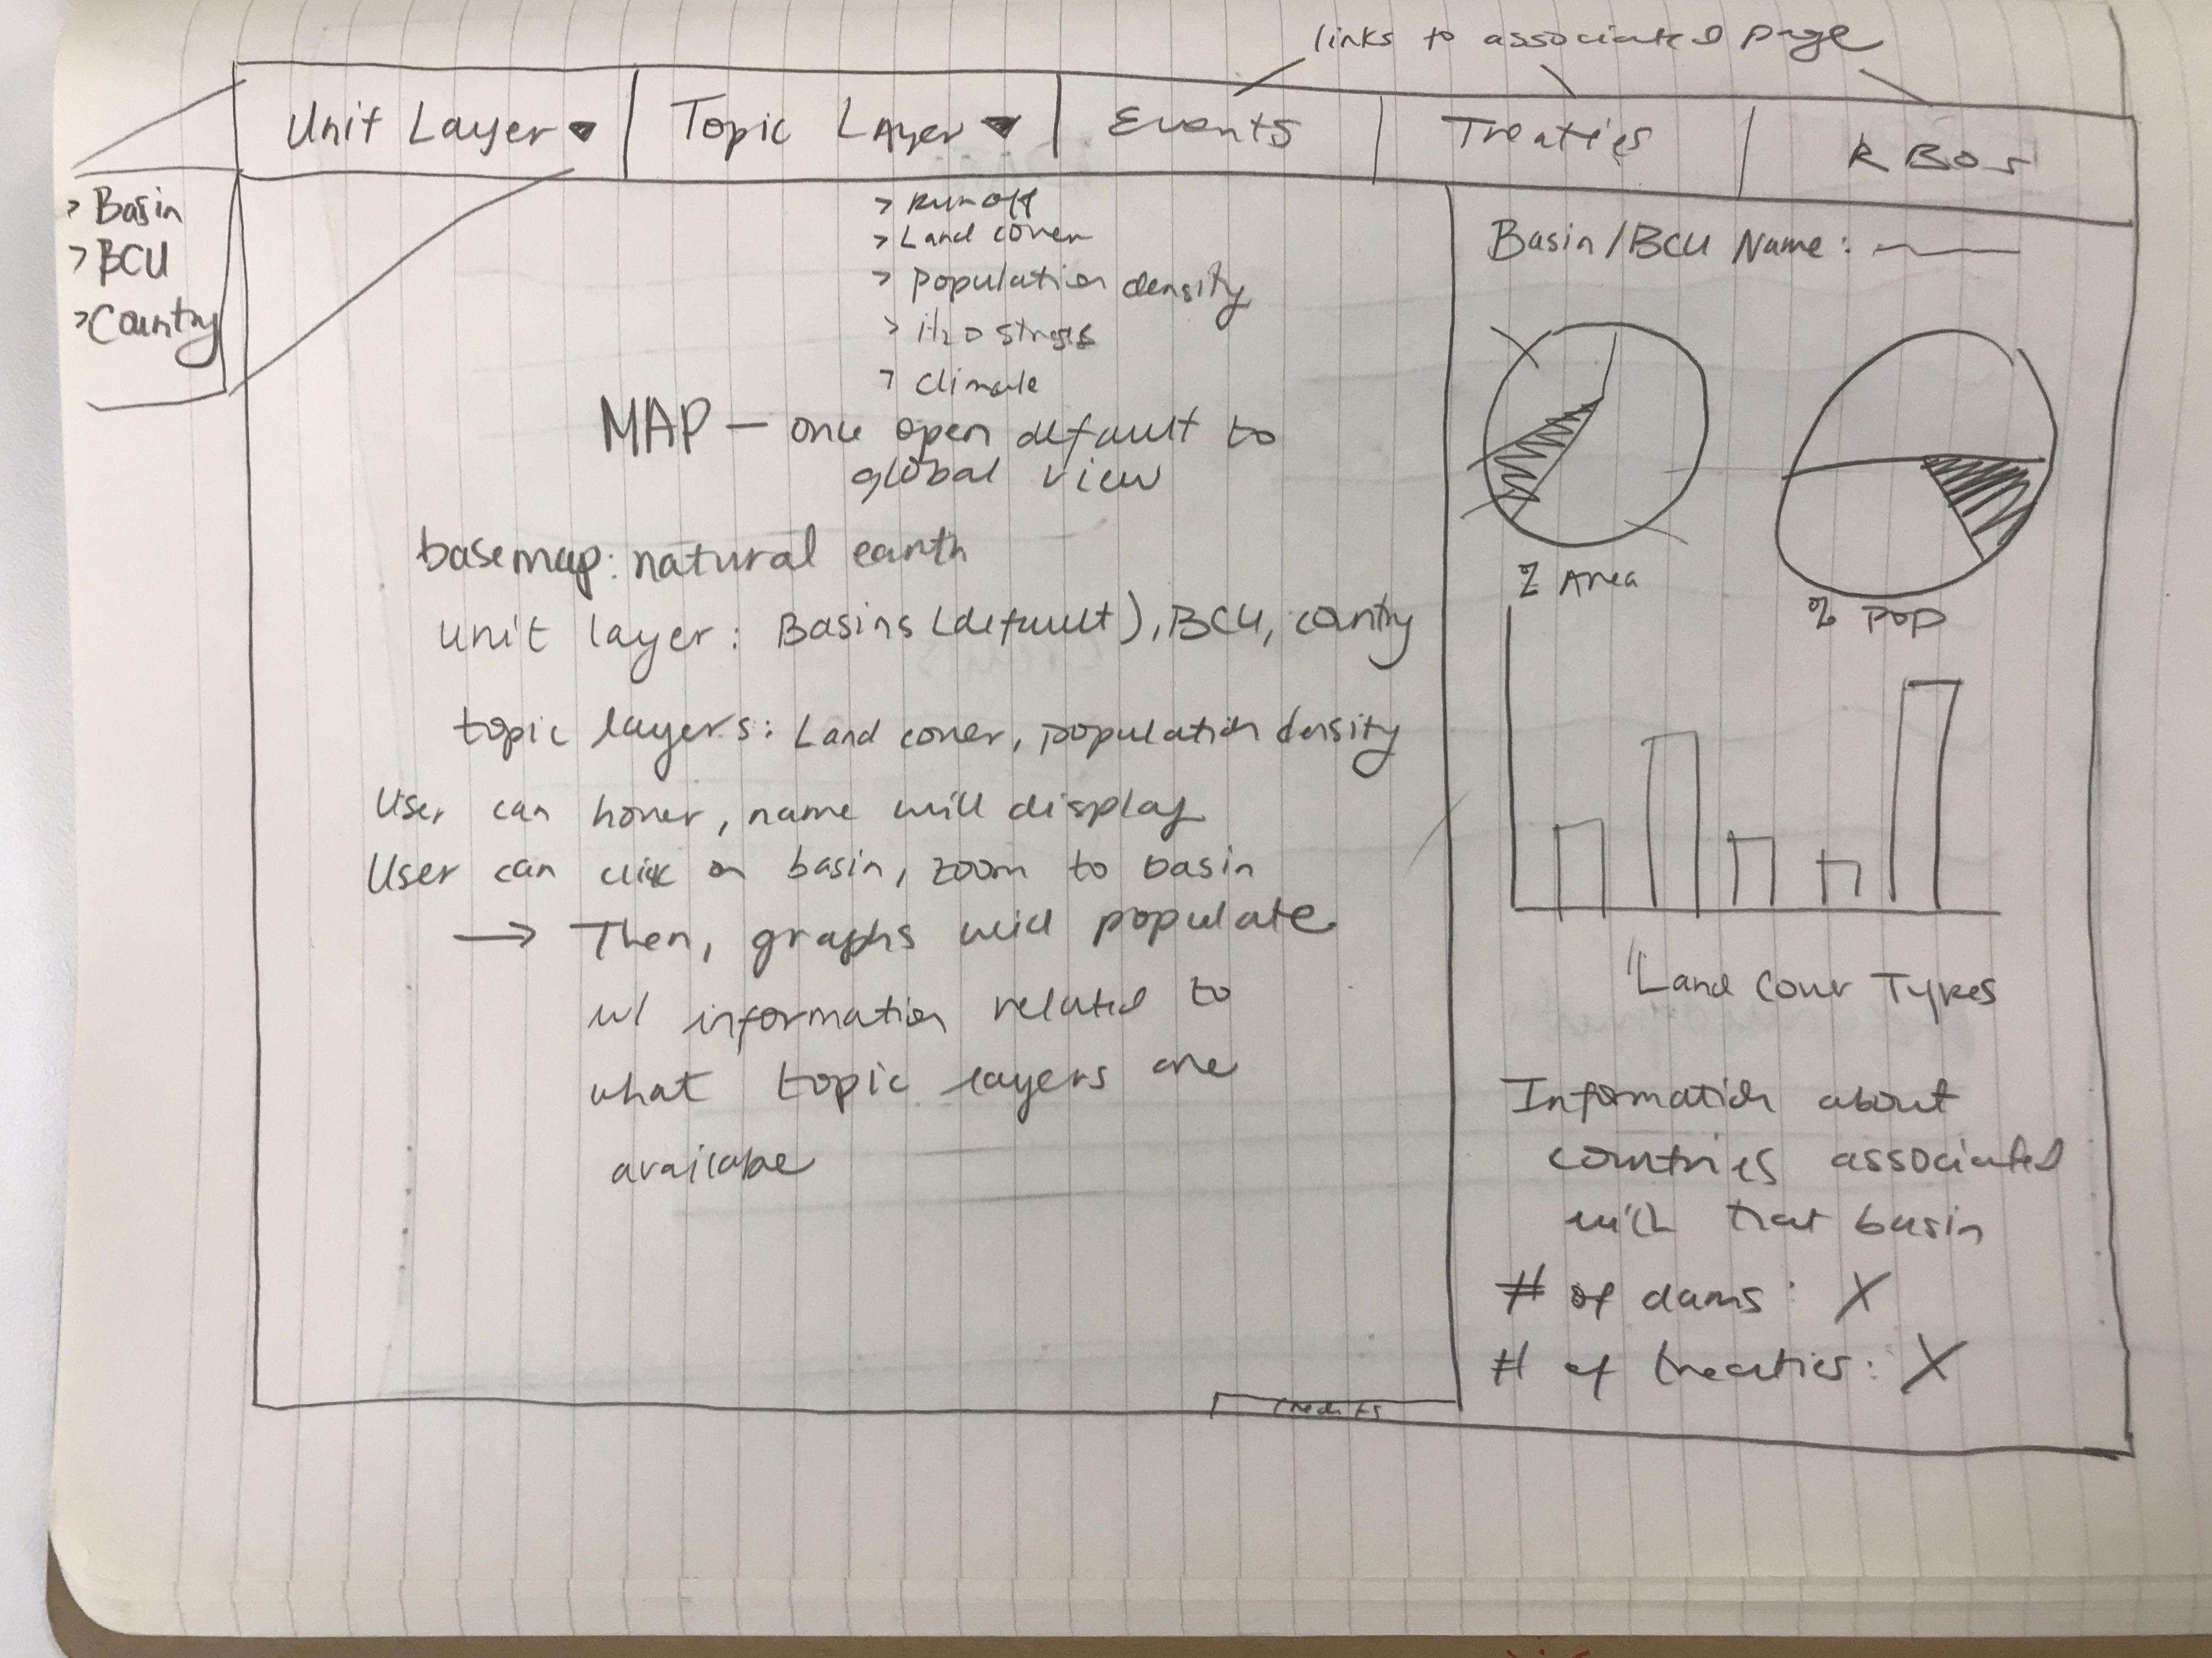 links to associated page
Unit Layer ▾ Topic Layer ▾ Events Treaties RBOs
> Basin
> BCU
> Country
> Runoff
> Land cover
> population density
> H2O stress
> climate
MAP — once open default to
global view
basemap: natural earth
unit layer: Basins (default), BCU, country
topic layers: Land cover, population density
User can hover, name will display
User can click on basin, zoom to basin
→ Then, graphs will populate
w/ information related to
what topic layers are
available
credits
Basin/BCU Name:
% Area
% Pop
Land Cover Types
Information about
countries associated
with that basin
# of dams: X
# of treaties: X